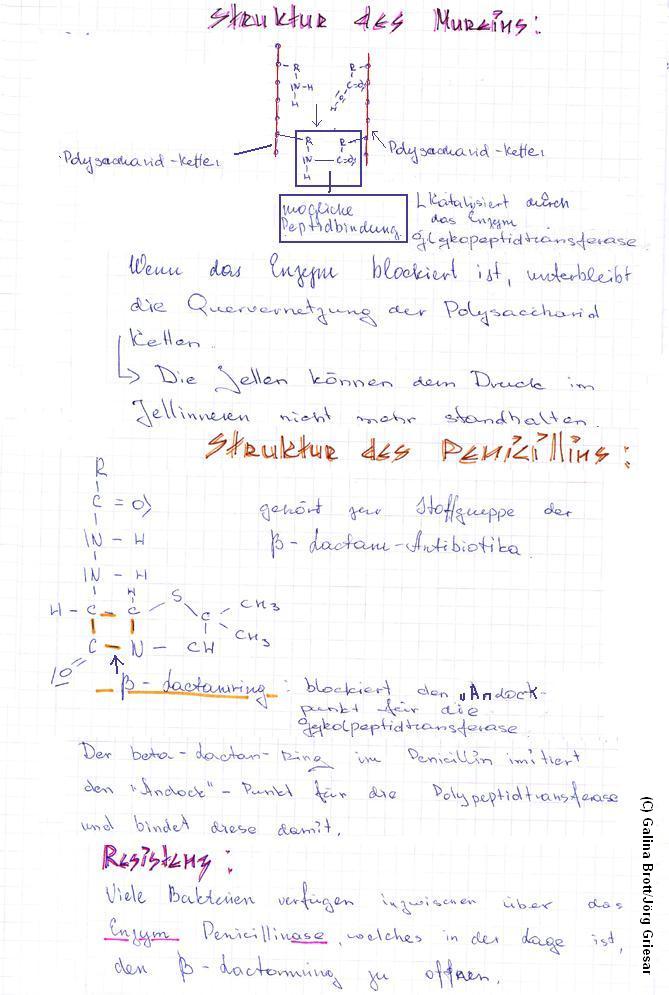 Struktur des Mureins:
R
R
IN-H
C=O)
H
H-O)
Polysaccharid-Ketten
Polysaccharid-Ketten
R
R
IN — C=O)
H
mögliche
Peptidbindung
Katalysiert durch
das Enzym
Glykopeptidtransferase.
Wenn das Enzym blockiert ist, unterbleibt
die Quervernetzung der Polysaccharid
Ketten.
Die Zellen können dem Druck im
Zellinneren nicht mehr standhalten.
Struktur des Penicillins:
R
C = O)
IN - H
IN - H
H
H - C - C
S
C
CH3
CH3
C - N - CH
IO
gehört zur Stoffgruppe der
β-Lactam-Antibiotika.
β-Lactamring : blockiert den "Andock-
punkt für die
Gykolpeptidtransferase
Der beta-Lactam-Ring im Penicillin imitiert
den "Andock"-Punkt für die Polypeptidtransferase
und bindet diese damit.
Resistens:
Viele Bakterien verfügen inzwischen über das
Enzym Penicillinase, welches in der Lage ist,
den β-Lactamring zu öffnen.
(C) Galina Brott/Jörg Griesar